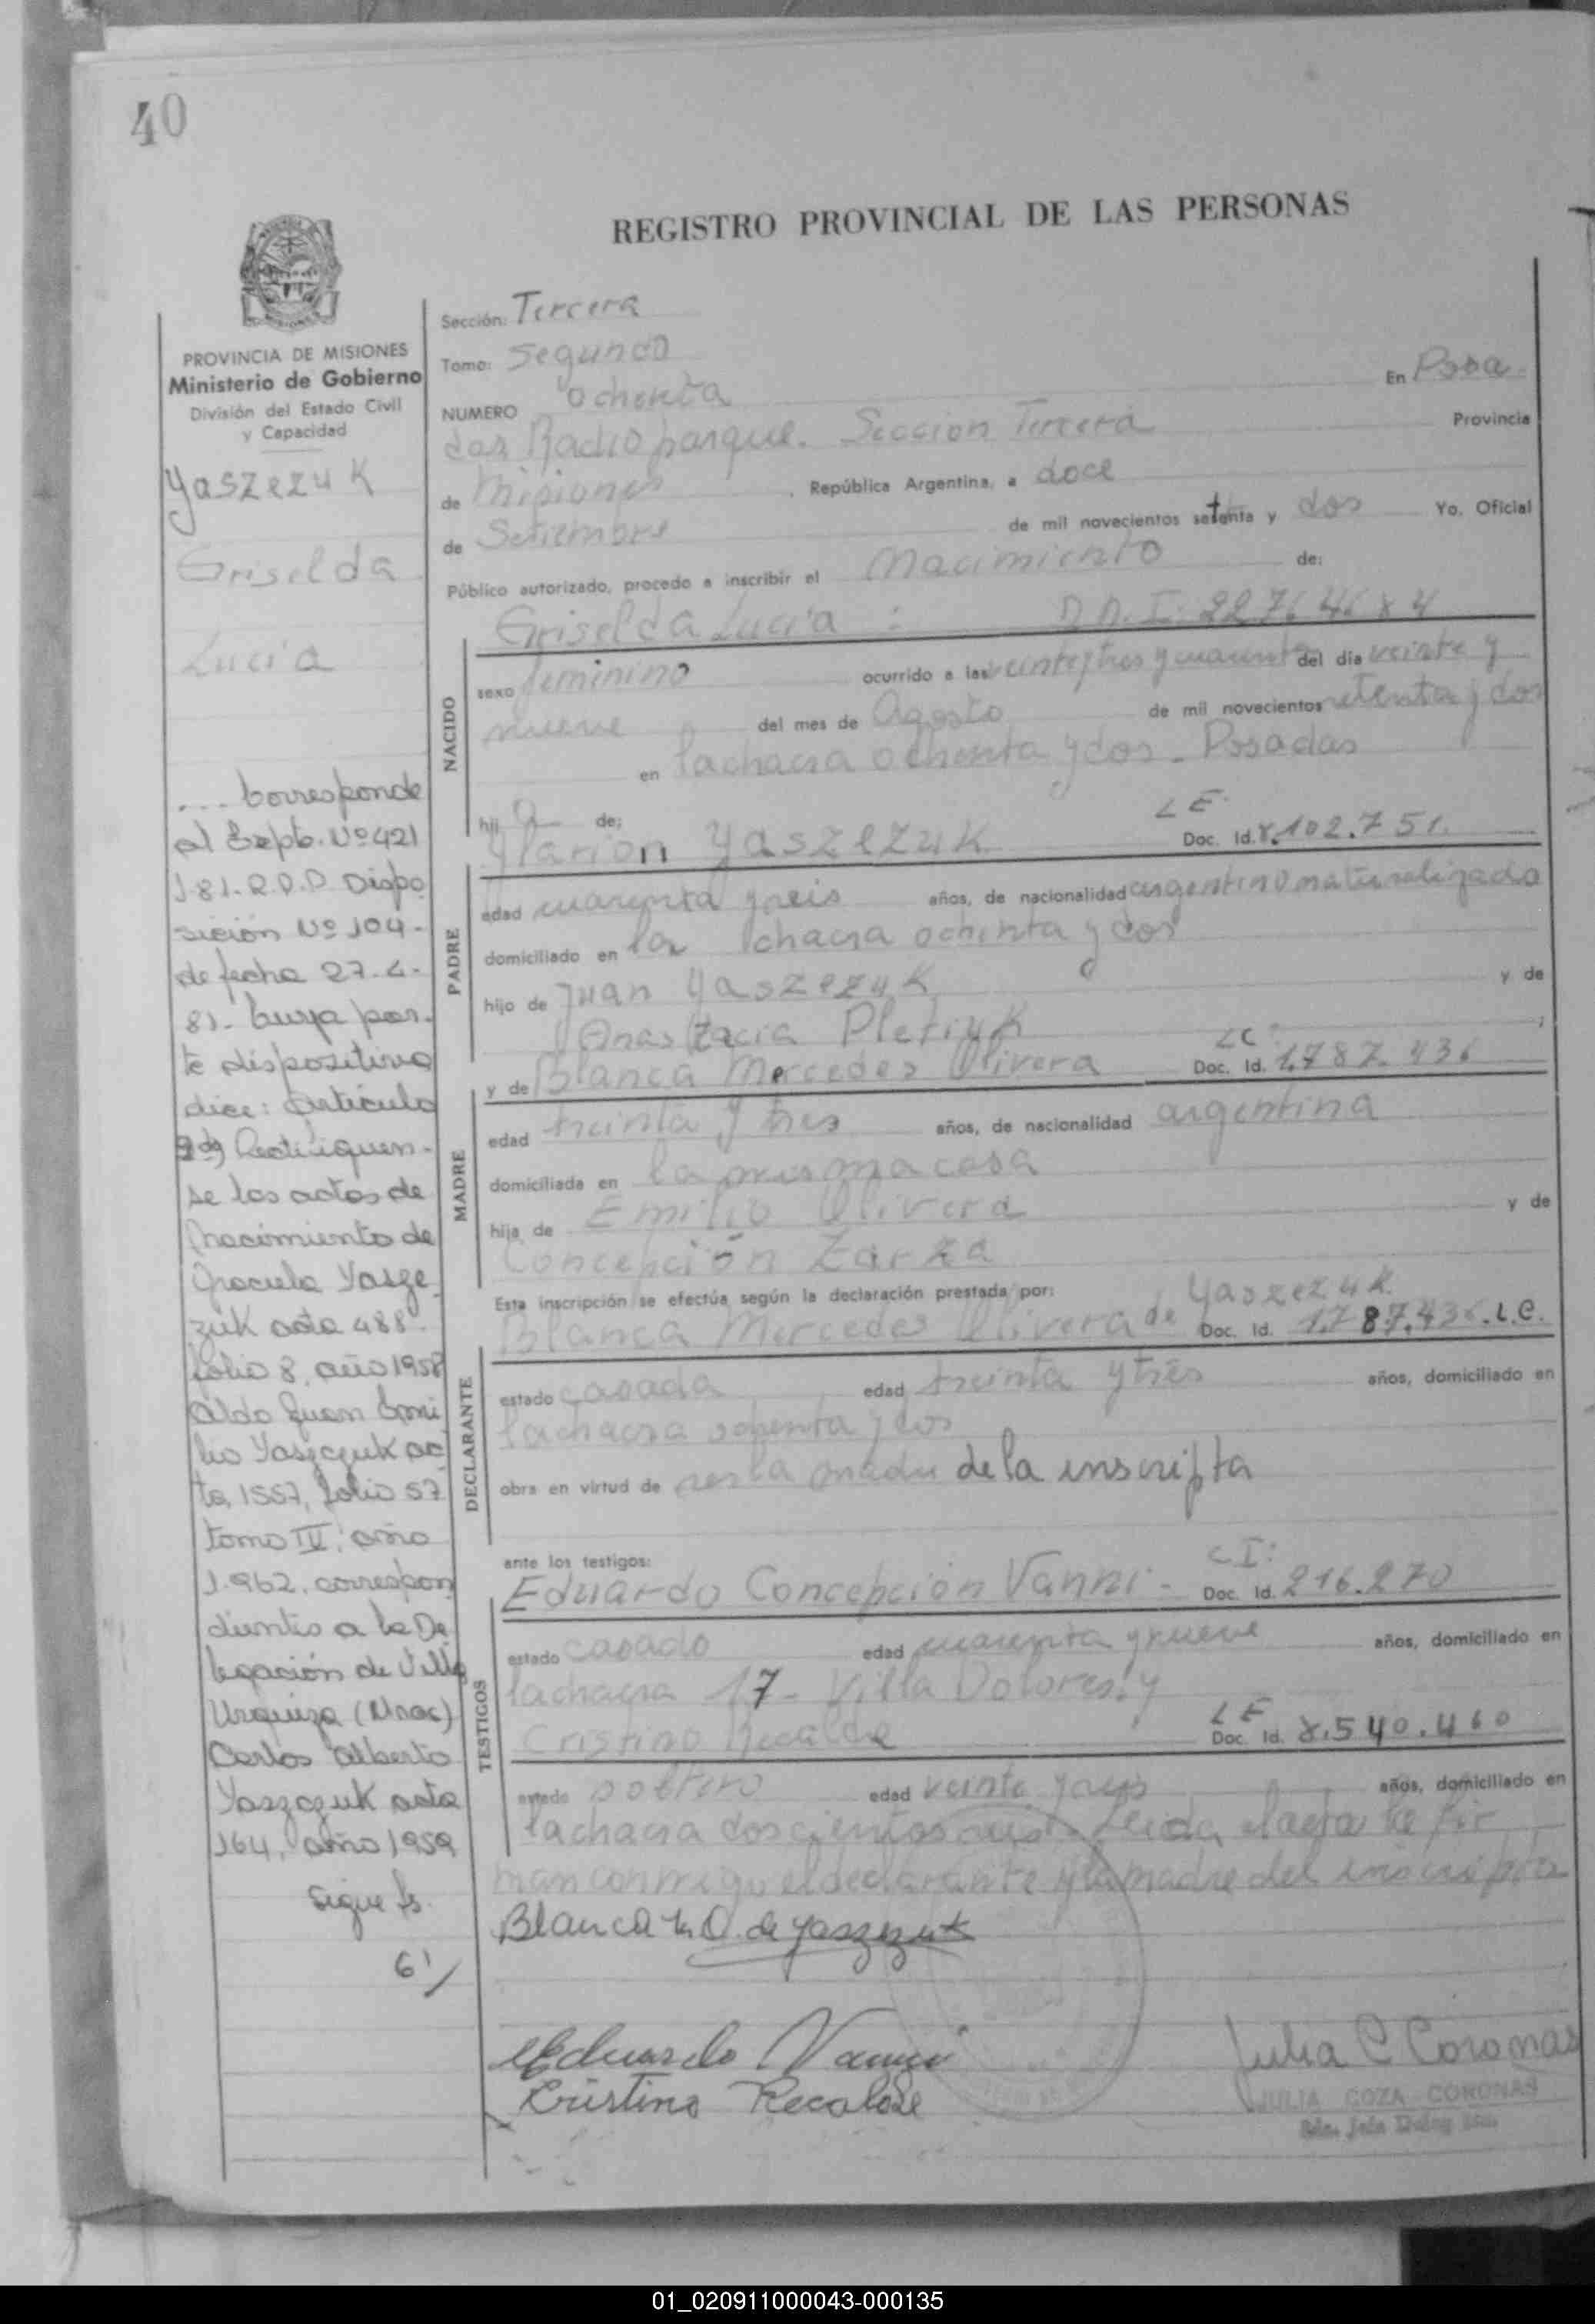 40
REGISTRO PROVINCIAL DE LAS PERSONAS
PROVINCIA DE MISIONES
Ministerio de Gobierno
División del Estado Civil
y Capacidad
Yaszezuk
Griselda
Lucia
.... Corresponde
al Expte. Nº 421
181-R.P.P Dispo
sición Nº 104-
de fecha 27-4-
81- Cuya par-
te dispositiva
dice: Artículo
Rectifiquen-
se las actas de
Nacimiento de
Graciela Yasze
zuk acta 488-
folio 8, año 1958
Aldo Juan Emi
lio Yaszczuk ac
ta, 1557, folio 57
tomo IV, año
1.962, correspon
dientes a la De
legación de Villa
Urquiza (Mnes)
Carlos Alberto
Yaszczuk acta
164, año 1959
Sigue fs.
61/
Sección: Tercera
Tomo: Segundo
NUMERO ochenta En Posa
das Radio parque. Sección Tercera Provincia
de Misiones, República Argentina, a doce
de Setiembre de mil novecientos setenta y dos Yo. Oficial
Público autorizado, procedo a inscribir el Nacimiento de:
Griselda Lucía : D.N.I. 22764684
NACIDO
sexo femenino ocurrido a las veintey tres y cuarenta del día veinte y
nueve del mes de Agosto de mil novecientos setenta y dos
en la chacra ochenta y dos - Posadas
hij a de: LE
Ylarion Yaszezuk Doc. Id. 8.102.751.
PADRE
edad cuarenta y seis años, de nacionalidad argentino naturalizado
domiciliado en la chacra ochenta y dos
hijo de Juan Yaszezuk y de
Anastacia Pletiuk LC:
y de Blanca Mercedes Olivera Doc. Id. 1.787.436
MADRE
edad treinta y tres años, de nacionalidad argentina
domiciliada en la misma casa
hija de Emilio Olivera y de
Concepción Zarza
Esta inscripción se efectúa según la declaración prestada por: Yaszezuk
Blanca Mercedes Olivera de Doc. Id. 1.787.436. L.C.
DECLARANTE
estado casada edad treinta y tres años, domiciliado en
la chacra ochenta y dos
obra en virtud de ser la madre de la inscripta
ante los testigos: C.I:
Eduardo Concepción Vanni - Doc. Id. 216.270
TESTIGOS
estado casado edad cuarenta y nueve años, domiciliado en
la chacra 17 - Villa Dolores. y
Cristino Recalde LE Doc. Id. 8.540.460
estado soltero edad veinte y seis años, domiciliado en
la chacra doscientos seis - Leida el acta la fir
man conmigo el declarante y la madre del inscripto
Blanca M. O. de Yaszezuk
Eduardo Vanni
Cristino Recalde
Julia C Coronas
JULIA COZA CORONAS
01_020911000043-000135